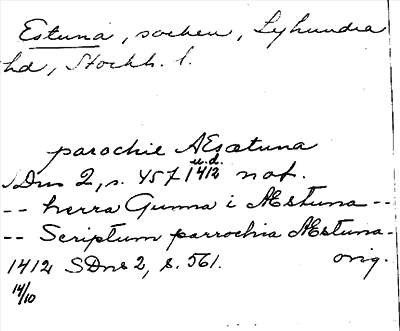 Estuna, socken, Lyhundra
hd, Stockh. l.
parochie AEsætuna
SDns 2, s. 457 u.d. 1412 not.
-- herra Gunna i Æstuna --
-- Scriptum parrochia Æstuna.
1412 SDns 2, s. 561. orig.
14/10